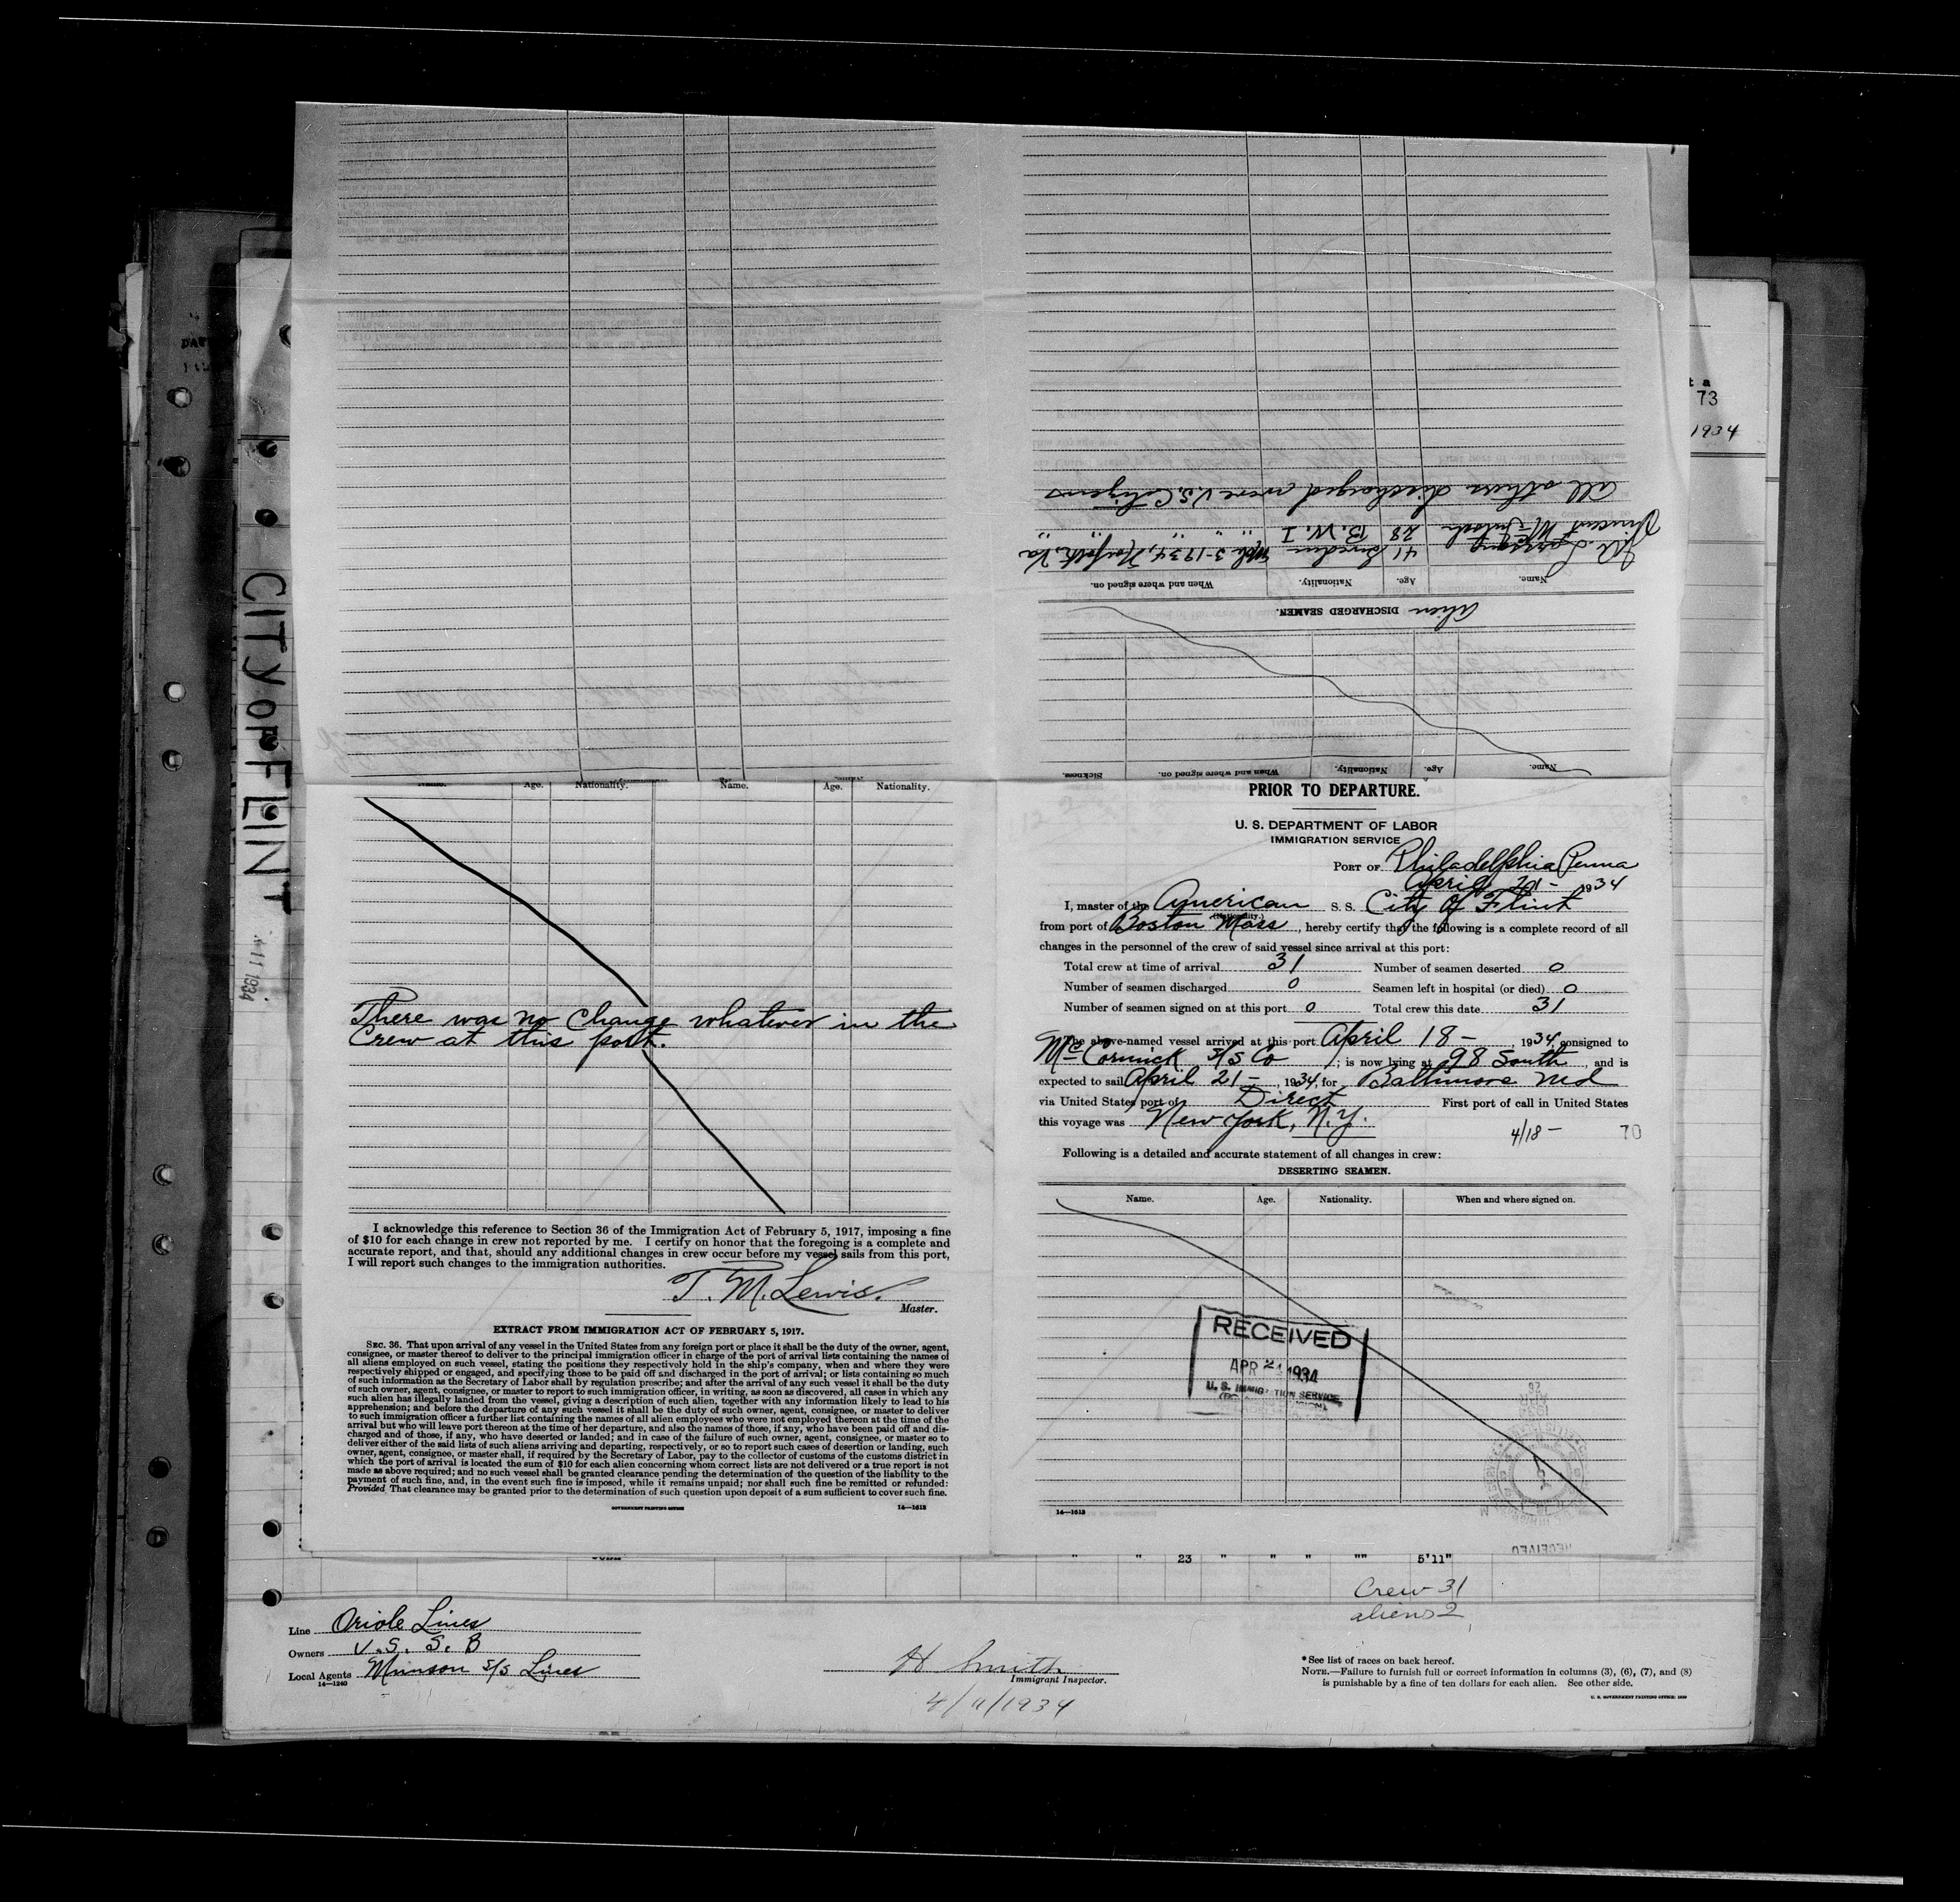 CITY OF FLINT
11 1934
73
1934
All others discharged were U.S. Citizens
28 B. W. I " " "
41 Sweden 3-1934, Norfolk Va
Name. Age. Nationality. When and where signed on.
Alien DISCHARGED SEAMEN.
Name. Age. Nationality. When and where signed on. Sickness.
Age. Nationality. Name. Age. Nationality.
There was no change whatever in the
Crew at this port.
I acknowledge this reference to Section 36 of the Immigration Act of February 5, 1917, imposing a fine
of $10 for each change in crew not reported by me. I certify on honor that the foregoing is a complete and
accurate report, and that, should any additional changes in crew occur before my vessel sails from this port,
I will report such changes to the immigration authorities.
T. M. Lewis.
Master.
EXTRACT FROM IMMIGRATION ACT OF FEBRUARY 5, 1917.
SEC. 36. That upon arrival of any vessel in the United States from any foreign port or place it shall be the duty of the owner, agent,
consignee, or master thereof to deliver to the principal immigration officer in charge of the port of arrival lists containing the names of
all aliens employed on such vessel, stating the positions they respectively hold in the ship's company, when and where they were
respectively shipped or engaged, and specifying those to be paid off and discharged in the port of arrival; or lists containing so much
of such information as the Secretary of Labor shall by regulation prescribe; and after the arrival of any such vessel it shall be the duty
of such owner, agent, consignee, or master to report to such immigration officer, in writing, as soon as discovered, all cases in which any
such alien has illegally landed from the vessel, giving a description of such alien, together with any information likely to lead to his
apprehension; and before the departure of any such vessel it shall be the duty of such owner, agent, consignee, or master to deliver
to such immigration officer a further list containing the names of all alien employees who were not employed thereon at the time of the
arrival but who will leave port thereon at the time of her departure, and also the names of those, if any, who have been paid off and dis-
charged and of those, if any, who have deserted or landed; and in case of the failure of such owner, agent, consignee, or master so to
deliver either of the said lists of such aliens arriving and departing, respectively, or so to report such cases of desertion or landing, such
owner, agent, consignee, or master shall, if required by the Secretary of Labor, pay to the collector of customs of the customs district in
which the port of arrival is located the sum of $10 for each alien concerning whom correct lists are not delivered or a true report is not
made as above required; and no such vessel shall be granted clearance pending the determination of the question of the liability to the
payment of such fine, and, in the event such fine is imposed, while it remains unpaid; nor shall such fine be remitted or refunded:
Provided That clearance may be granted prior to the determination of such question upon deposit of a sum sufficient to cover such fine.
GOVERNMENT PRINTING OFFICE 14—1613
PRIOR TO DEPARTURE.
U. S. DEPARTMENT OF LABOR
IMMIGRATION SERVICE
PORT OF Philadelphia Penna
April 21 - 1934
I, master of the American S. S. City of Flint
(Nationality.)
from port of Boston Mass, hereby certify that the following is a complete record of all
changes in the personnel of the crew of said vessel since arrival at this port:
Total crew at time of arrival 31 Number of seamen deserted 0
Number of seamen discharged 0 Seamen left in hospital (or died) 0
Number of seamen signed on at this port 0 Total crew this date 31
The above-named vessel arrived at this port April 18 -, 1934, consigned to
McCormick S/S Co; is now lying at 98 South, and is
expected to sail April 21 -, 1934, for Baltimore Md
via United States port of Direct First port of call in United States
this voyage was New York, N.Y.
4/18 - 70
Following is a detailed and accurate statement of all changes in crew:
DESERTING SEAMEN.
Name. Age. Nationality. When and where signed on.
RECEIVED
APR 21 1934
U. S. IMMIGRATION SERVICE
14—1613
RECEIVED
" " 23 " " " "" 5'11"
Crew 31
aliens 2
Line Oriole Lines
Owners U. S. S. B
Local Agents Munson S/S Lines
14—1240
H Smith
Immigrant Inspector.
4/11/1934
*See list of races on back hereof.
NOTE.—Failure to furnish full or correct information in columns (3), (6), (7), and (8)
is punishable by a fine of ten dollars for each alien. See other side.
U. S. GOVERNMENT PRINTING OFFICE: 1930